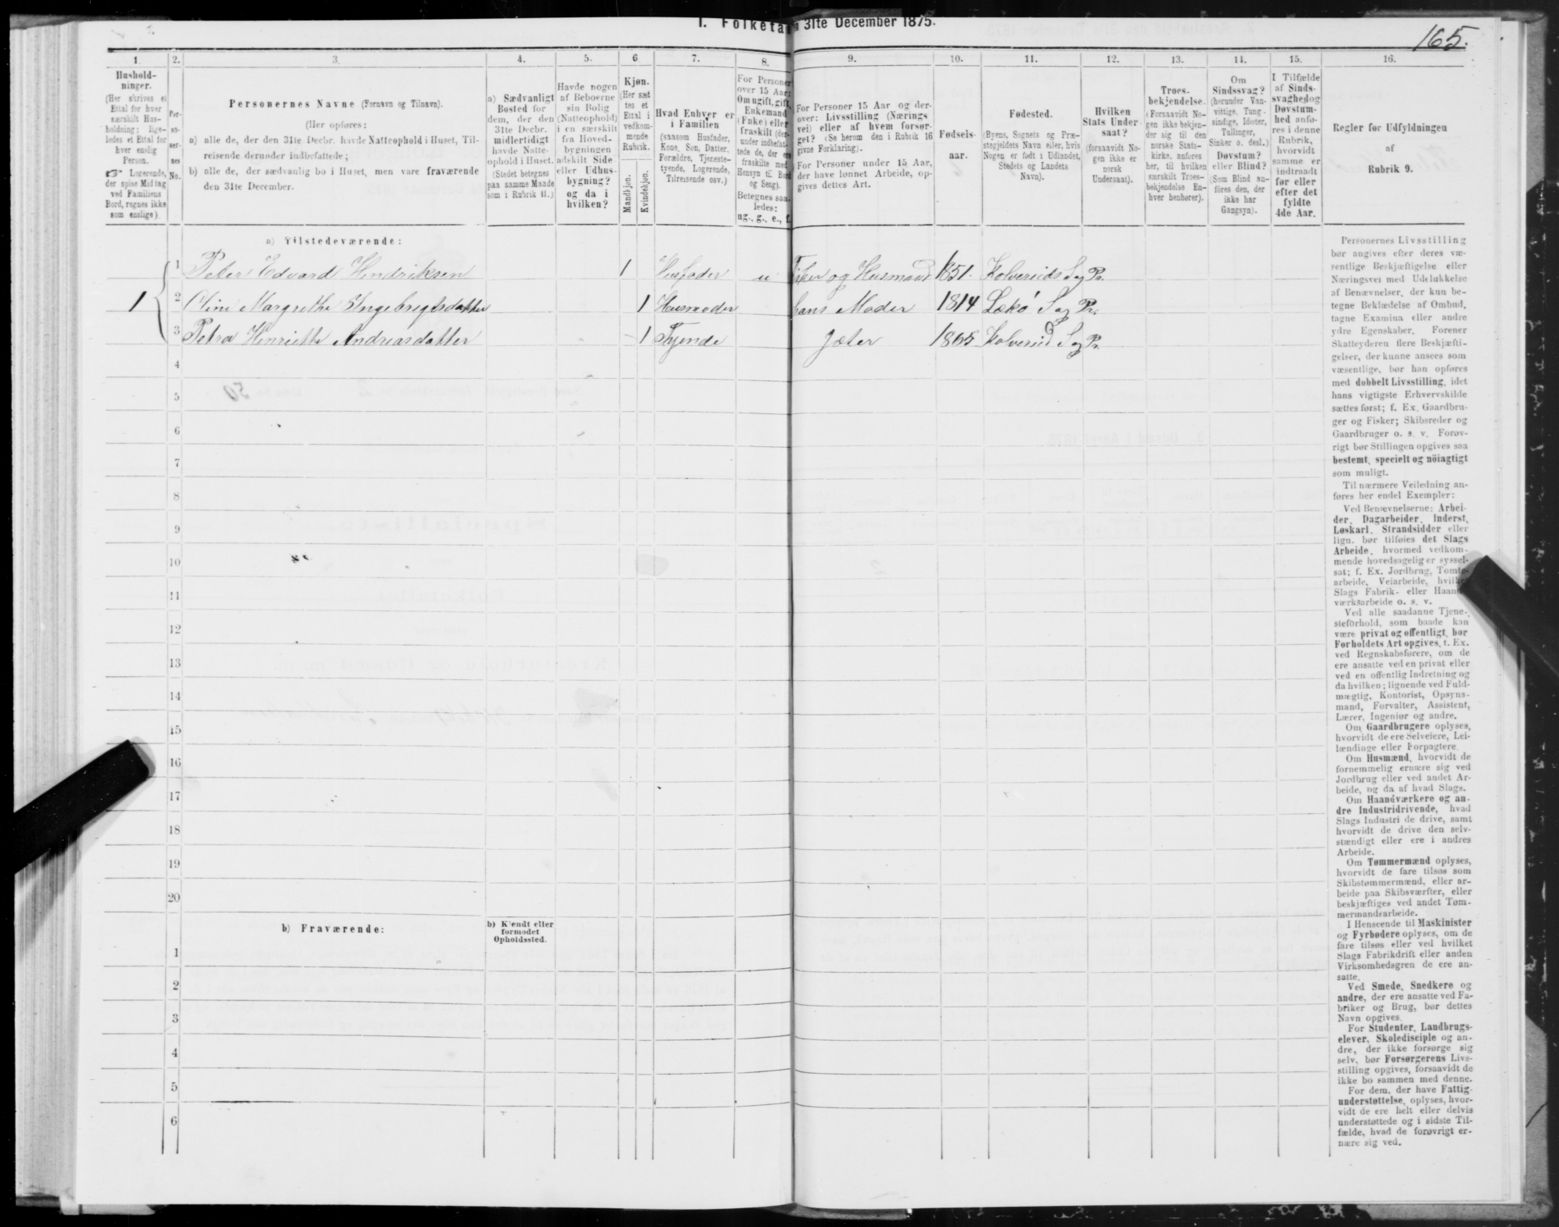 I. Folketa n 31te December 1875.
165.
1.
2.
3.
4.
5.
6
7.
8.
9.
10.
11.
12.
13.
14.
15.
16.
Hushold-
ninger.
(Her skrives et
Ettal for hver
særskilt Hus-
holdning; lige-
ledes et Ettal for
hver enslig
Person.
☞ Logerende,
der spise Middag
ved Familiens
Bord, regnes ikke
som enslige).
Per-
so-
ner-
nes
No.
Personernes Navne (Fornavn og Tilnavn).
(Her opføres:
a) alle de, der den 31te Decbr. havde Natteophold i Huset, Til-
reisende derunder indbefattede;
b) alle de, der sædvanlig bo i Huset, men vare fraværende
den 31te December.
a) Sædvanligt
Bosted for
dem, der den
31te Decbr.
midlertidigt
havde Natte-
ophold i Huset.
(Stedet betegnes
paa samme Maade
som i Rubrik 11.)
Havde nogen
af Beboerne
sin Bolig
(Natteophold)
i en særskilt
fra Hoved-
bygningen
adskilt Side-
eller Udhus-
bygning?
og da i
hvilken?
Kjøn.
(Her sæt-
tes et
Ettal i
vedkom-
mende
Rubrik.
Mandkjøn.
Kvindekjøn.
Hvad Enhver er
i Familien
(saasom Husfader,
Kone, Søn, Datter,
Forældre, Tjeneste-
tyende, Logerende,
Tilreisende osv.)
For Personer
over 15 Aar:
Om ugift, gift,
Enkemand
(Enke) eller
fraskilt (der-
under indbefat-
tede de, der ere
fraskilte med
Hensyn til Bord
og Seng).
Betegnes saa-
ledes:
ug., g., e., f.
For Personer 15 Aar og der-
over: Livsstilling (Nærings-
vei) eller af hvem forsør-
get? (Se herom den i Rubrik 16
givne Forklaring).
For Personer under 15 Aar,
der have lønnet Arbeide, op-
gives dettes Art.
Fødsels-
aar.
Fødested.
(Byens, Sognets og Præ-
stegjeldets Navn eller, hvis
Nogen er født i Udlandet,
Stedets og Landets
Navn).
Hvilken
Stats Under-
saat?
(forsaavidt No-
gen ikke er
norsk
Undersaat).
Troes-
bekjendelse.
(Forsaavidt No-
gen ikke bekjen-
der sig til den
norske Stats-
kirke, anføres
her, til hvilken
særskilt Troes-
bekjendelse En-
hver henhører).
Om
Sindssvag?
(herunder Van-
vittige, Tung-
sindige, Idioter,
Tullinger,
Sinker o. desl.)
Døvstum?
eller Blind?
(Som Blind an-
føres den, der
ikke har
Gangsyn).
I Tilfælde
af Sinds-
svaghed og
Døvstum-
hed anfø-
res i denne
Rubrik,
hvorvidt
samme er
indtraadt
før eller
efter det
fyldte
4de Aar.
Regler for Udfyldningen
af
Rubrik 9.
a) Tilstedeværende:
1 Peter Edvard Hendriksen 1 Husfader u Fisker og Husmand 1851. Kolvereids S og Pr.
1 2 Oline Margrethe Ingebrigtsdatter 1 Husmoder hans Moder 1814 Lekø S og Pr.
3 Petra Henriette Andreasdatter 1 Tyende Jæter 1865 Kolvereid S og Pr.
4
5
6
7
8
9
10
11
12
13
14
15
16
17
18
19
20
b) Fraværende:
b) Kjendt eller
formodet
Opholdssted.
1
2
3
4
5
6
Personernes Livsstilling
bør angives efter deres væ-
sentlige Beskjæftigelse eller
Næringsvei med Udelukkelse
af Benævnelser, der kun be-
tegne Beklædelse af Ombud,
tagne Examina eller andre
ydre Egenskaber. Forener
Skatteyderen flere Beskjæfti-
gelser, der kunne ansees som
væsentlige, bør han opføres
med dobbelt Livsstilling, idet
hans vigtigste Erhvervskilde
sættes først; f. Ex. Gaardbru-
ger og Fisker; Skibsreder og
Gaardbruger o. s. v. Forøv-
rigt bør Stillingen opgives saa
bestemt, specielt og nöiagtigt
som muligt.
Til nærmere Veiledning an-
føres her endel Exempler:
Ved Benævnelserne: Arbei-
der, Dagarbeider, Inderst,
Løskarl, Strandsidder eller
lign. bør tilføies det Slags
Arbeide, hvormed vedkom-
mende hovedsagelig er syssel-
sat; f. Ex. Jordbrug, Tomte-
arbeide, Veiarbeide, hvilket
Slags Fabrik- eller Haand-
værksarbeide o. s. v.
Ved alle saadanne Tjene-
steforhold, som baade kan
være privat og offentligt, bør
Forholdets Art opgives, f. Ex.
ved Regnskabsførere, om de
ere ansatte ved en privat eller
ved en offentlig Indretning og
da hvilken; lignende ved Fuld-
mægtig, Kontorist, Opsyns-
mand, Forvalter, Assistent,
Lærer, Ingeniør og andre.
Om Gaardbrugere oplyses,
hvorvidt de ere Selveiere, Lei-
lændinge eller Forpagtere.
Om Husmænd, hvorvidt de
fornemmelig ernære sig ved
Jordbrug eller ved andet Ar-
beide, og da af hvad Slags.
Om Haandværkere og an-
dre Industridrivende, hvad
Slags Industri de drive, samt
hvorvidt de drive den selv-
stændigt eller ere i andres
Arbeide.
Om Tømmermænd oplyses,
hvorvidt de fare tilsøs som
Skibstømmermænd, eller ar-
beide paa Skibsværfter, eller
beskjæftiges ved andet Tøm-
mermandsarbeide.
I Henseende til Maskinister
og Fyrbødere oplyses, om de
fare tilsøs eller ved hvilket
Slags Fabrikdrift eller anden
Virksomhedsgren de ere an-
satte.
Ved Smede, Snedkere og
andre, der ere ansatte ved Fa-
briker og Brug, bør dettes
Navn opgives.
For Studenter, Landbrugs-
elever, Skoledisciple og an-
dre, der ikke forsørge sig
selv, bør Forsørgerens Livs-
stilling opgives, forsaavidt de
ikke bo sammen med denne.
For dem, der have Fattig-
understøttelse, oplyses, hvor-
vidt de ere helt eller delvis
understøttede og i sidste Til-
fælde, hvad de forøvrigt er-
nære sig ved.